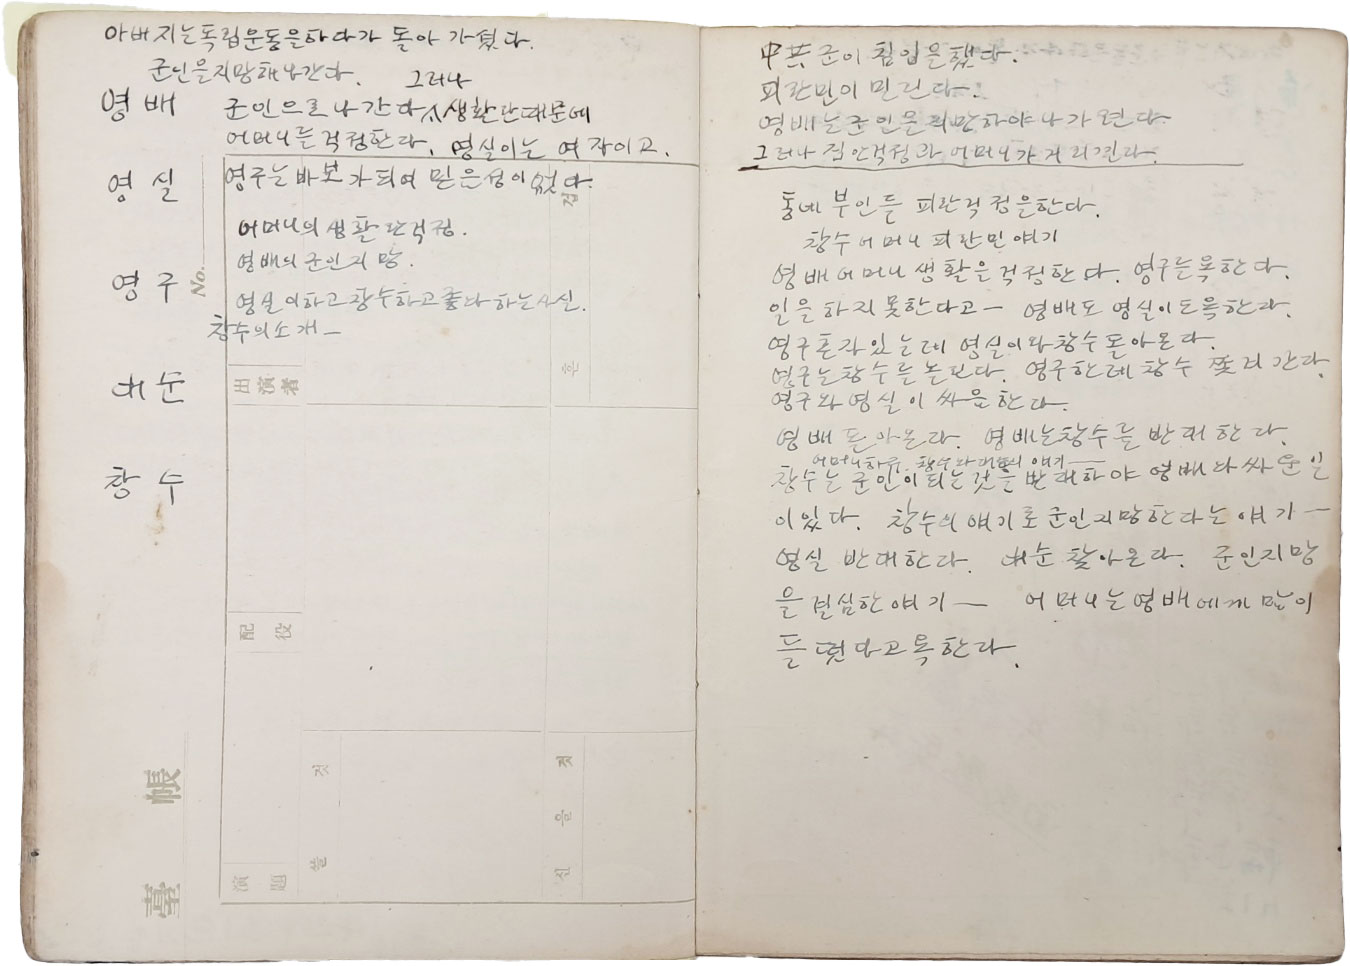 아버지는독립운동을하다가 돌아 가셨다.
군인을지망해나간다.
그러나
영배
군인으로 나 간다 생활난때문에
어머니를걱정한다. 영실이는 여자이고.
영실
영구는 바보가되여 믿은성이 없다.
어머니의 생활난걱정.
영배의 군인지망.
영구
No.
영실이하고창수하고좋다하는사실.
창수의소개—
대순
창수
出演者
配役
演題
臺帳
中共군이 침입을했다.
피란민이 밀린다.
영배는군인을지망하야나가련다.
그러나 집안걱정과 어머니가거리낀다.
동네 부인들 피란걱정을한다.
창수어머니 피란민얘기
영배어머니 생활을걱정한다. 영구는욕한다.
일을 하지못한다고— 영배도 영실이도욕한다.
영구혼자있는데 영실이와창수돌아온다.
영구는창수를놀린다. 영구한테창수 쫓겨간다.
영구와영실이 싸움한다.
영배돌아온다. 영배는창수를반대한다.
창수는군인이되는것을반대하야영배다싸운일
이있다. 창수의얘기로군인지망한다는얘기—
영실 반대한다. 대순찾아온다. 군인지망
을결심한얘기— 어머니는영배에게많이
들떴다고욕한다.